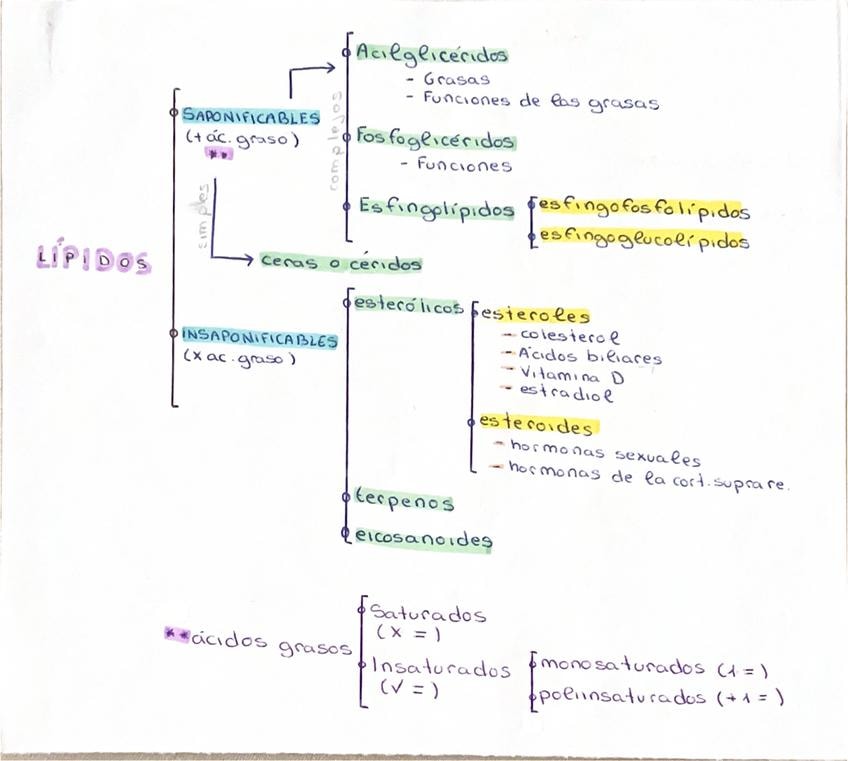 LÍPIDOS
SAPONIFICABLES
(+ ác. graso)
**
simples
complejos
Acilglicéridos
- Grasas
- Funciones de las grasas
Fosfoglicéridos
- Funciones
Esfingolípidos
esfingofosfolípidos
esfingoglucolípidos
ceras o céridos
INSAPONIFICABLES
(x ac. graso)
esterólicos
esteroles
- colesterol
- Ácidos biliares
- Vitamina D
- estradiol
esteroides
- hormonas sexuales
- hormonas de la cort. suprare.
terpenos
eicosanoides
**ácidos grasos
Saturados
(x =)
Insaturados
(√ =)
monosaturados (1 =)
poliinsaturados (+1 =)